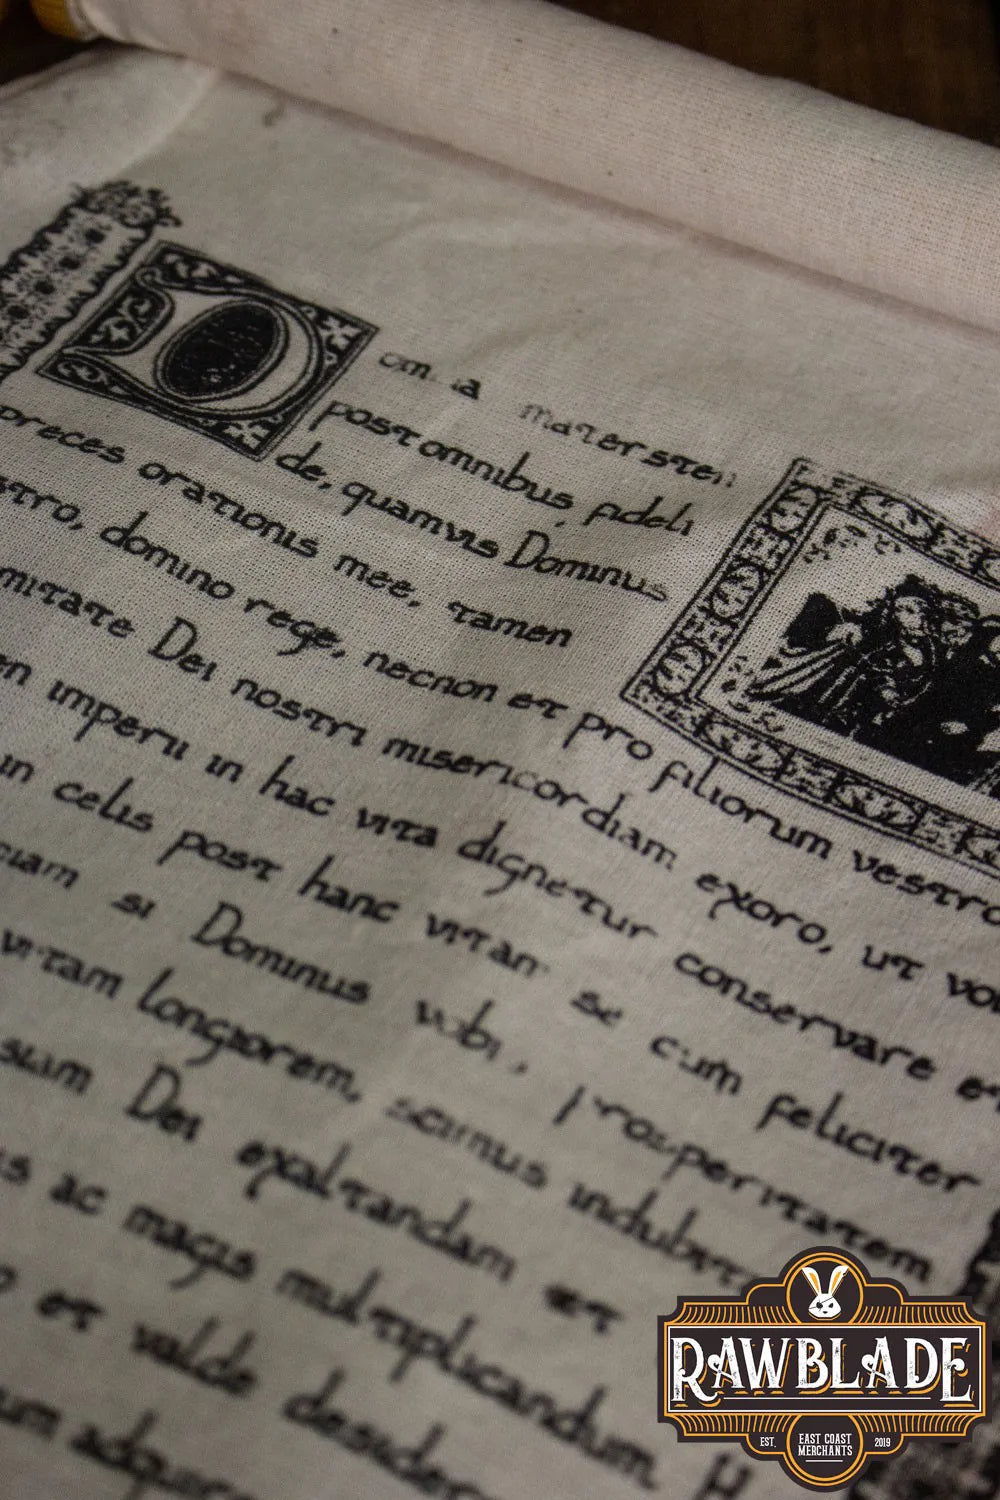 D mater
post omnibus fideli
de, quamvis Dominus
preces orationis mee, tamen
stro, domino rege, necnon et pro filiorum vestro
mitate Dei nostri misericordiam exoro, ut vo
en imperii in hac vita dignetur conservare et
in celis post hanc vitan se cum feliciter
ciam si Dominus vobi, prosperitatem
vitam longiorem, scimus indubit
suum Dei exaltandam et
s ac magis multiplicandum H
o et valde desider
RAWBLADE
EST. EAST COAST MERCHANTS 2019